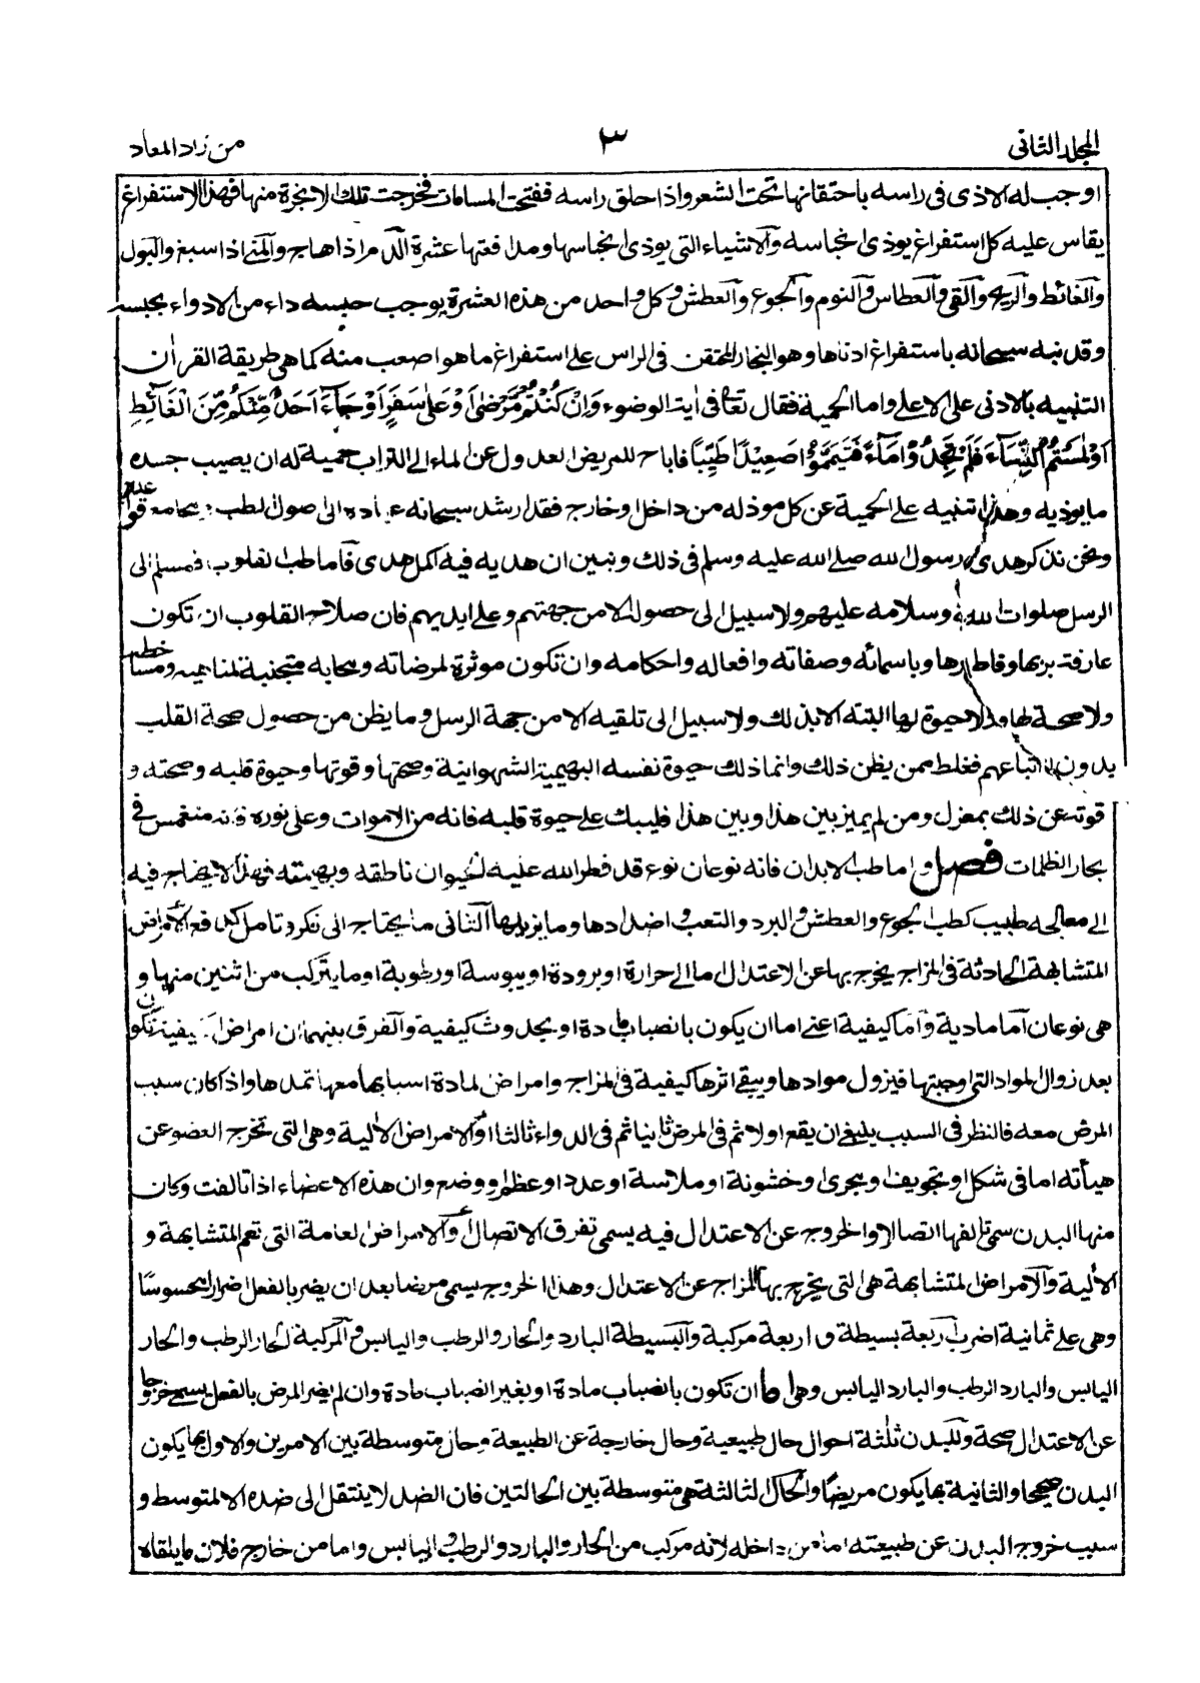 المجلد الثانى
٣
من زاد المعاد
اوجب له الاذى فى راسه باحتقانها تحت الشعر واذا حلق راسه ففتحت المسامات فخرجت تلك الابخرة منها فهذا الاستفراغ
يقاس عليه كل استفراغ يوذى انحباسه والاشياء التى يوذى انحباسها ومدافعتها عشرة الدم اذا هاج والمنى اذا سبغ والبول
والغائط والريح والقى والعطاس والنوم والجوع والعطش وكل واحد من هذه العشرة يوجب حبسه داء من الادواء بحبسه
وقد نبه سبحانه باستفراغ ادناها وهو البخار المحتقن فى الراس على استفراغ ما هو اصعب منه كما هى طريقة القران
التنبيه بالادنى على الاعلى واما الحمية فقال تعالى فى اية الوضوء وَاِنْ كُنْتُمْ مَّرْضٰى اَوْ عَلٰى سَفَرٍ اَوْ جَآءَ اَحَدٌ مِّنْكُمْ مِّنَ الْغَآئِطِ
اَوْ لٰمَسْتُمُ النِّسَآءَ فَلَمْ تَجِدُوْا مَآءً فَتَيَمَّمُوْا صَعِيْدًا طَيِّبًا فاباح للمريض العدول عن الماء الى التراب حمية له ان يصيب جسده
ما يوذيه وهذا تنبيه على الحمية عن كل موذ له من داخل او خارج فقد ارشد سبحانه عباده الى اصول الطب ومجامع قواعده
ونحن نذكر هدى رسول الله صلى الله عليه وسلم فى ذلك ونبين ان هديه فيه اكمل هدى فاما طب القلوب فمسلم الى
الرسل صلوات الله وسلامه عليهم ولا سبيل الى حصوله الا من جهتهم وعلى ايديهم فان صلاح القلوب ان تكون
عارفة بربها وفاطرها وباسمائه وصفاته وافعاله واحكامه وان تكون موثرة لمرضاته ومحابه متجنبة لمناهيه ومساخطه
ولا صحة لها ولا حيوة لها البتة الا بذلك ولا سبيل الى تلقيه الا من جهة الرسل وما يظن من حصول صحة القلب
بدون اتباعهم فغلط ممن يظن ذلك وانما ذلك حيوة نفسه البهيمية الشهوانية وصحتها وقوتها وحيوة قلبه وصحته و
قوته عن ذلك بمعزل ومن لم يميز بين هذا وبين هذا فليبك على حيوة قلبه فانه من الاموات وعلى نوره فانه منغمس فى
بحار الظلمات فصل واما طب الابدان فانه نوعان نوع قد فطر الله عليه الحيوان ناطقه وبهيمته فهذا لا يحتاج فيه
الى معالجه طبيب كطب الجوع والعطش والبرد والتعب واضدادها وما يزيلها الثانى ما يحتاج الى فكر وتامل كدفع الامراض
المتشابهة الحادثة فى المزاج يخرج بها عن الاعتدال اما الى حرارة او برودة او يبوسة او رطوبة او ما يتركب من اثنين منها و
هى نوعان اما مادية واما كيفية اعنى اما ان يكون بانصباب مادة او بحدوث كيفية والفرق بينهما ان امراض الكيفية تكون
بعد زوال المواد التى اوجبتها فيزول موادها ويبقى اثرها كيفية فى المزاج وامراض المادة اسبابها معها تمدها واذا كان سبب
المرض معه فالنظر فى السبب ينبغى ان يقع اولا ثم فى المرض ثانيا ثم فى الدواء ثالثا او الامراض الالية وهى التى تخرج العضو عن
هيأته اما فى شكل او تجويف او مجرى او خشونة او ملاسة او عدد او عظم او وضع وان هذه الاعضاء اذا تالفت وكان
منها البدن سمى تالفها اتصالا والخروج عن الاعتدال فيه يسمى تفرق الاتصال او الامراض العامة التى تعم المتشابهة و
الألية والامراض المتشابهة هى التى يخرج بها المزاج عن الاعتدال وهذا الخروج يسمى مرضا بعد ان يضر بالفعل اضرارا محسوسًا
وهى على ثمانية اضرب اربعة بسيطة واربعة مركبة والبسيطة البارد والحار والرطب واليابس والمركبة الحار الرطب والحار
اليابس والبارد الرطب والبارد اليابس وهى اما ان تكون بانصباب مادة او بغير انصباب مادة وان لم يضر المرض بالفعل يسمى خروجا
عن الاعتدال صحة وللبدن ثلثة احوال حال طبيعية وحال خارجة عن الطبيعة وحال متوسطة بين الامرين والاول بها يكون
البدن صحيحا والثانية بها يكون مريضا والحال الثالثة هى متوسطة بين الحالتين فان الضد لا ينتقل الى ضده الا لمتوسط و
سبب خروج البدن عن طبيعته اما من داخله لانه مركب من الحار والبارد والرطب واليابس واما من خارج فلان ما يلقاه